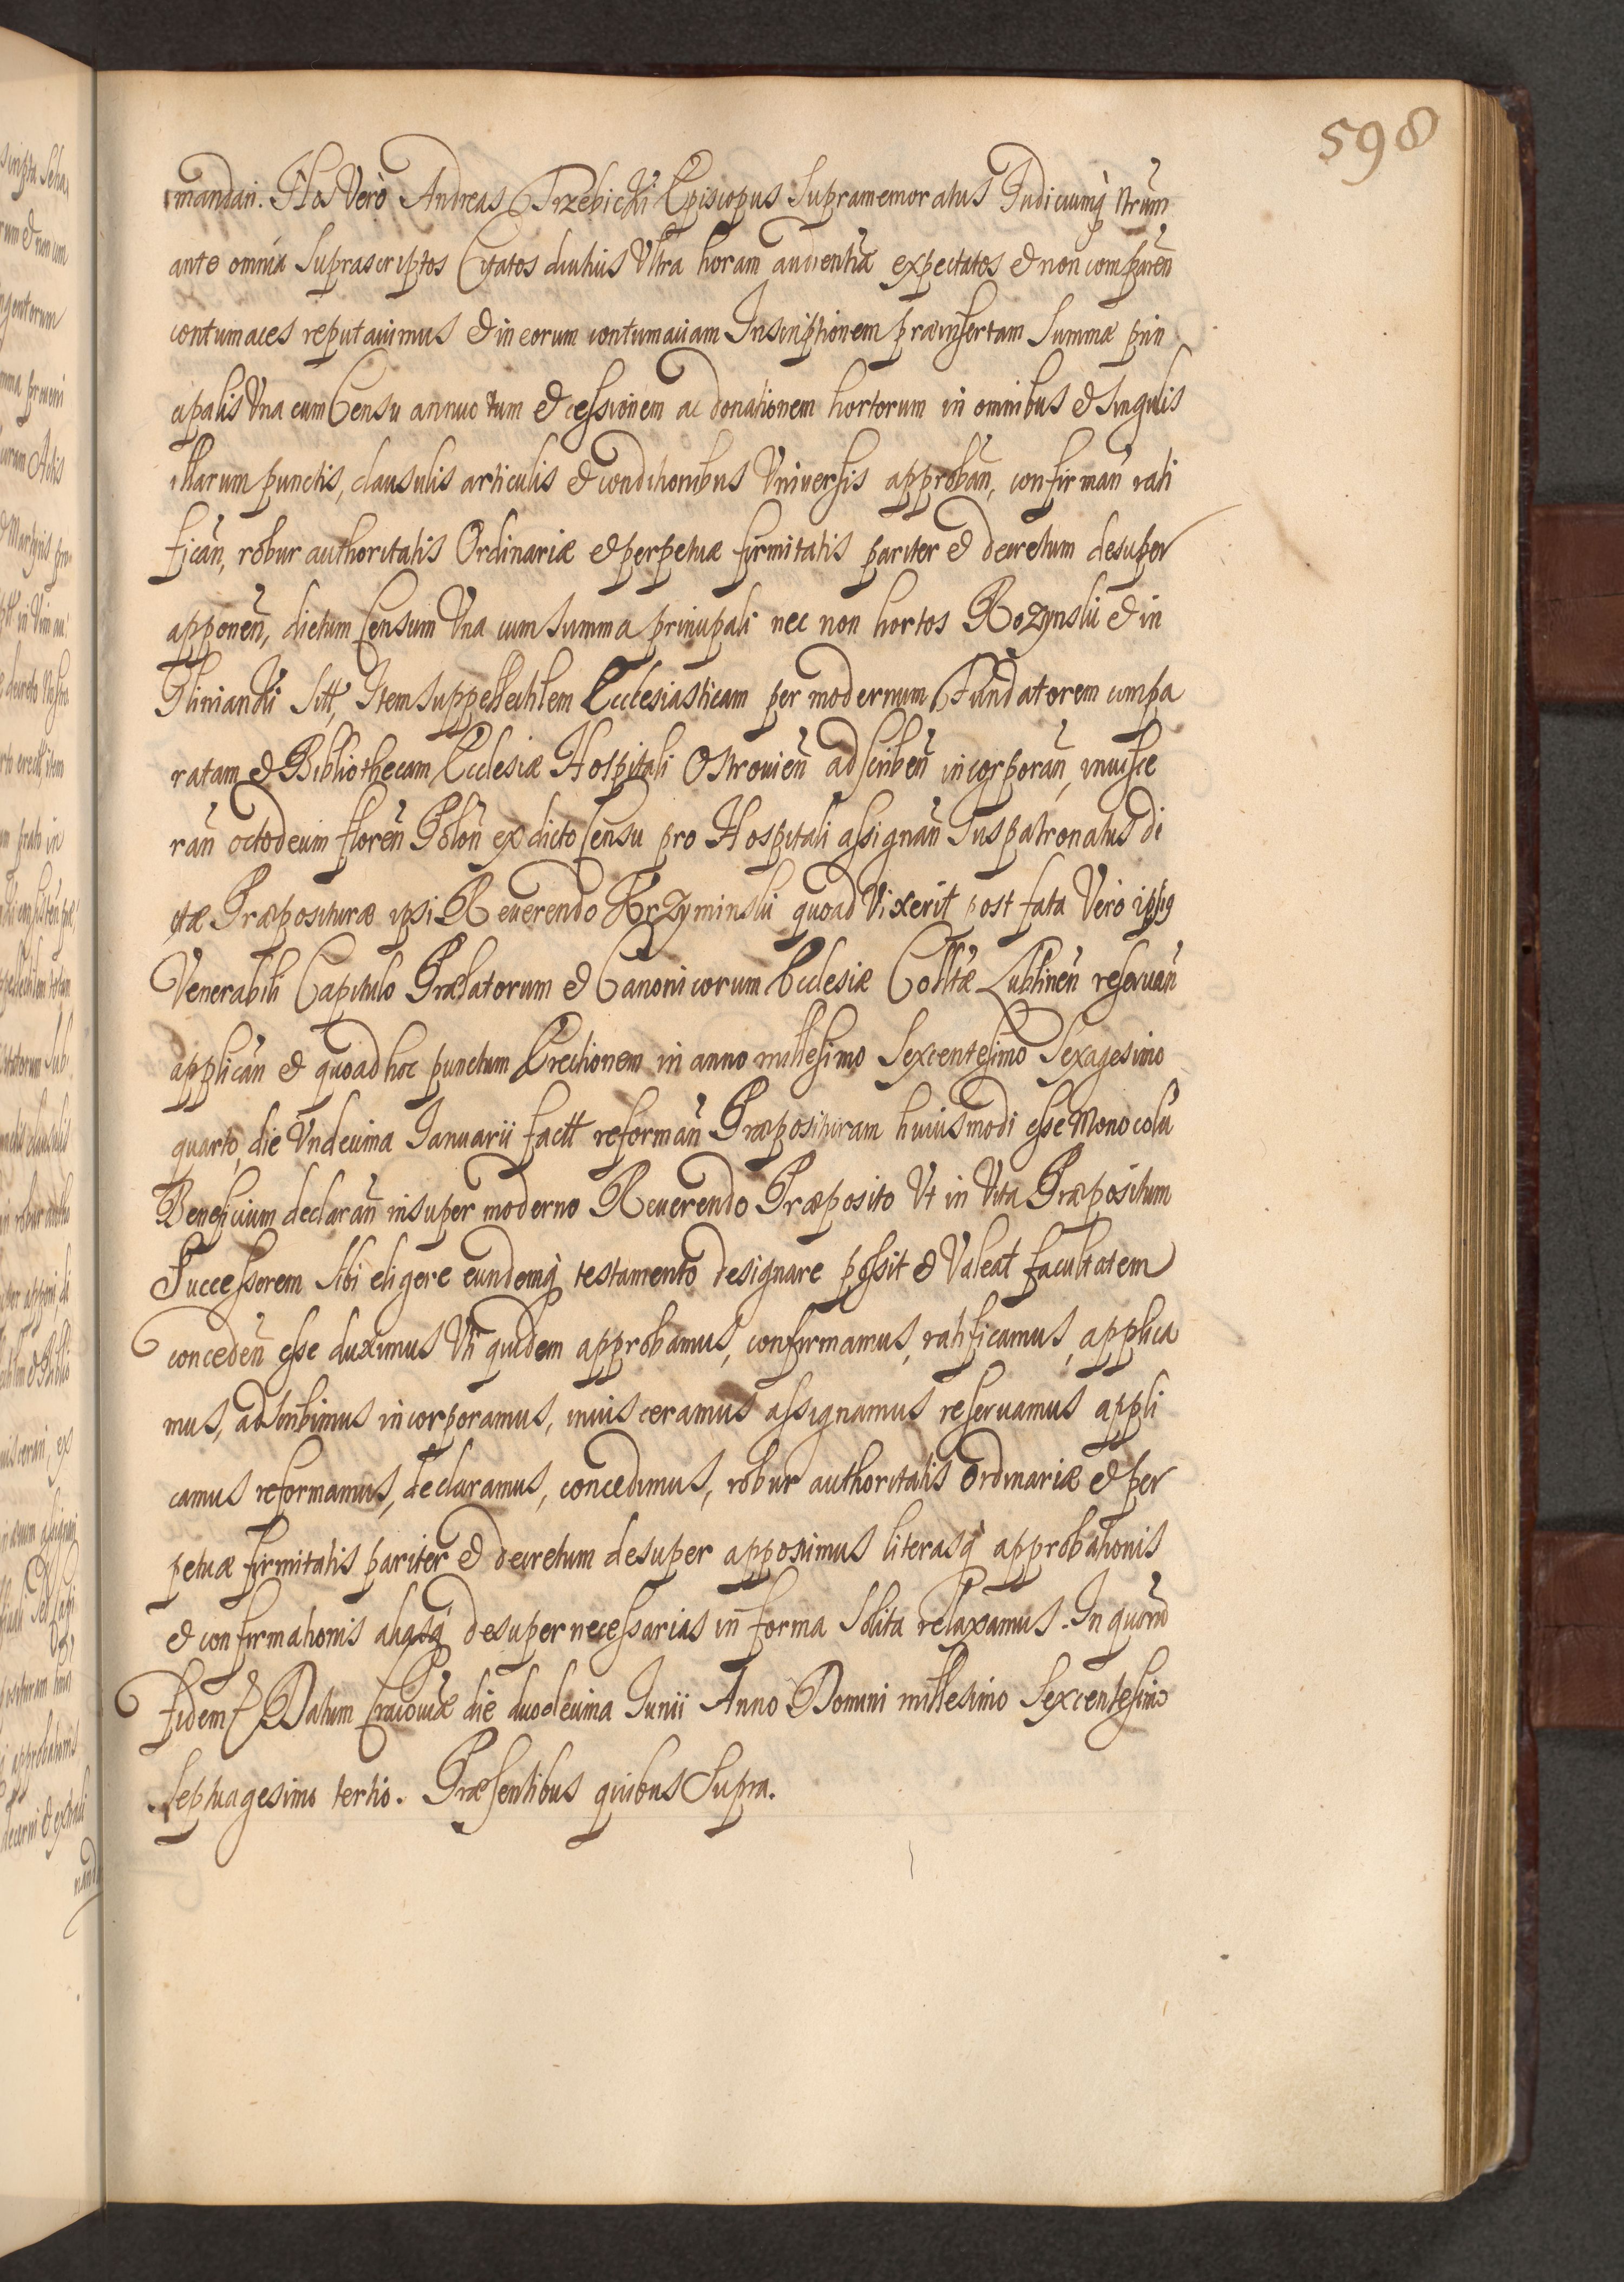 598
mandari. Nos Verò Andreas Trzebicki Episcopus Supramemoratus Iudiciumq́ nr̃um
ante omnia Suprascriptos Citatos diutius Vltra horam audientiæ expectatos & non comparen̄
contumaces reputauimus & in eorum contumaciam Inscriptionem præinsertam Summæ prin
cipalis Vna cum Censu annuo tum & cessionem ac donationem hortorum in omnibus & singulis
illarum punctis, clausulis articulis & conditionibus Vniuersis approban̄, confirman̄ rati
fican̄, robur authoritatis Ordinariæ & perpetuæ firmitatis pariter & decretum desuper
apponen̄, dictum Censum Vna cum summa principali nec non hortos Rozynskii & in
Glinianki Sitt, Item suppellectilem Ecclesiasticam per modernum Fundatorem compa
ratam & Bibliothecam Ecclesiæ Hospitali Ostrouien̄ adscriben̄ incorporan̄, inuisce
ran̄ octodecim floren̄ Polon̄ ex dicto Censu pro Hospitali assignan̄ Iuspatronatus di
ctæ Præposituræ ipsi Reuerendo Krzyminskii quoad Vixerit post fata Vero ipsig
Venerabili Capitulo Prælatorum & Canonicorum Ecclesiæ Colltæ Lublinen̄ reseruan̄
applican̄ & quoad hoc punctum Erectionem in anno millesimo Sexcentesimo Sexagesimo
quarto, die Vndecima Ianuarii factt reforman̄ Præposituram huiusmodi esse Monocolũ
Beneficium declaran̄ insuper moderno Reuerendo Præposito Vt in Vita Præpositum
Successorem Sibi eligere eundemq́ testamento designare possit & Valeat facultatem
conceden̄ esse duximus Vti quidem approbamus, confirmamus, ratificamus, applica
mus, adscribimus incorporamus, inuisceramus assignamus reseruamus appli
camus reformamus, declaramus, concedimus, robur authoritatis Ordinariæ & per
petuæ firmitatis pariter & decretum desuper apposuimus literasq́ approbationis
& confirmationis aliasq́ desuper necessarias in forma Solita relaxamus. In quoru̅
fidem & Datum Cracouiæ die duodecima Iunii Anno Domini millesimo Sexcentesimo
Septuagesimo tertio. Præsentibus quibus Supra.